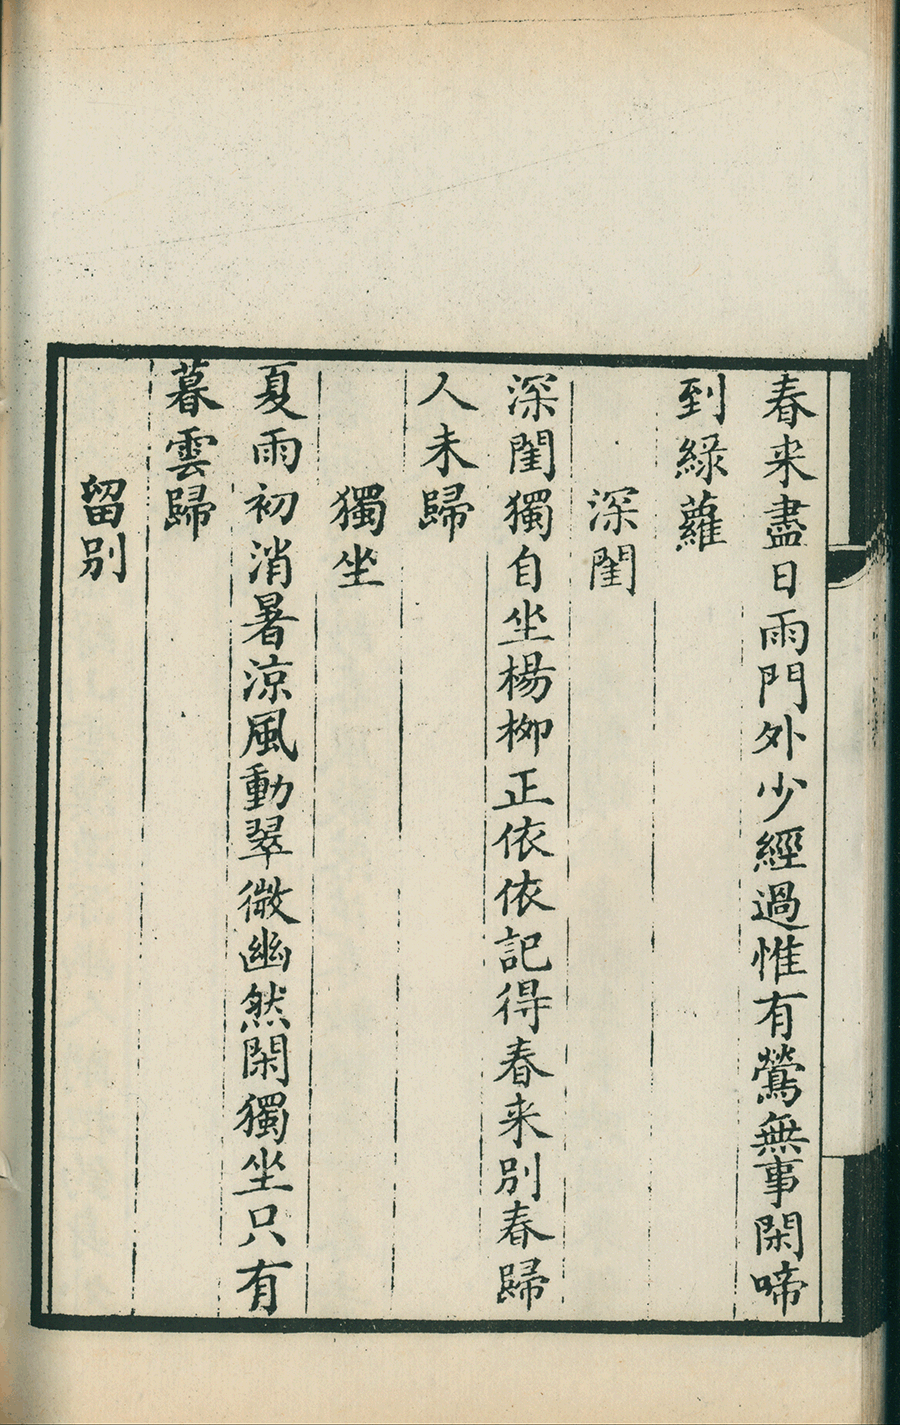 春来盡日雨門外少經過惟有鶯無事閑啼
到綠蘿
深閨
深閨獨自坐楊柳正依依記得春来別春歸
人未歸
獨坐
夏雨初消暑涼風動翠微幽然閑獨坐只有
暮雲歸
留別